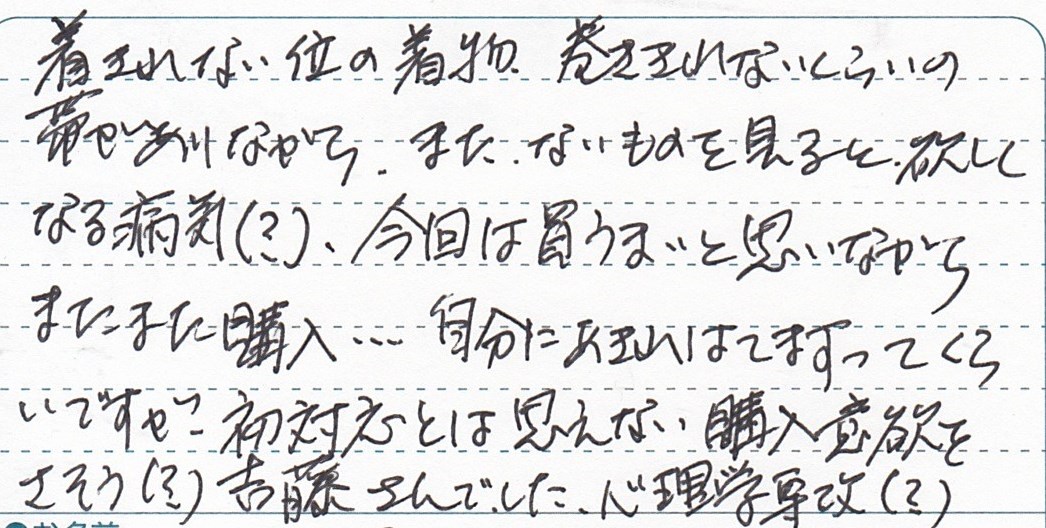 着きれない位の着物、巻ききれないくらいの
帯がありながら、また、ないものを見ると、欲しく
なる病気(?)、今回は買うまいと思いながら
またまた購入… 自分にあきれはてますってくら
いですが… 初対応とは思えない購入意欲を
さそう(?) 吉藤さんでした、心理学専攻(?)